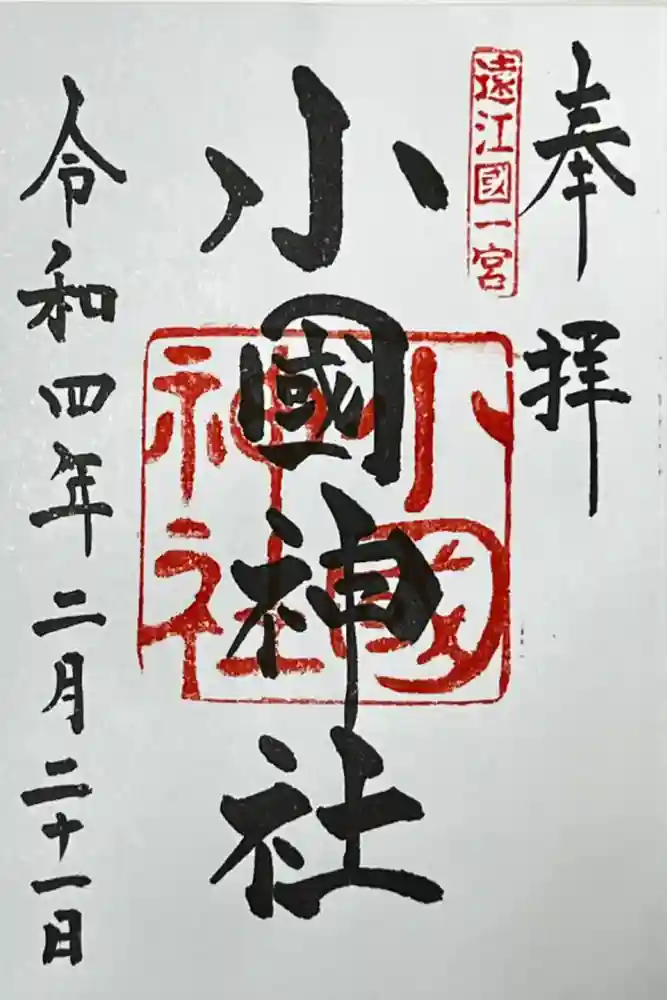 奉拝
遠江國一宮
小國神社
小國
神社
令和四年二月二十一日